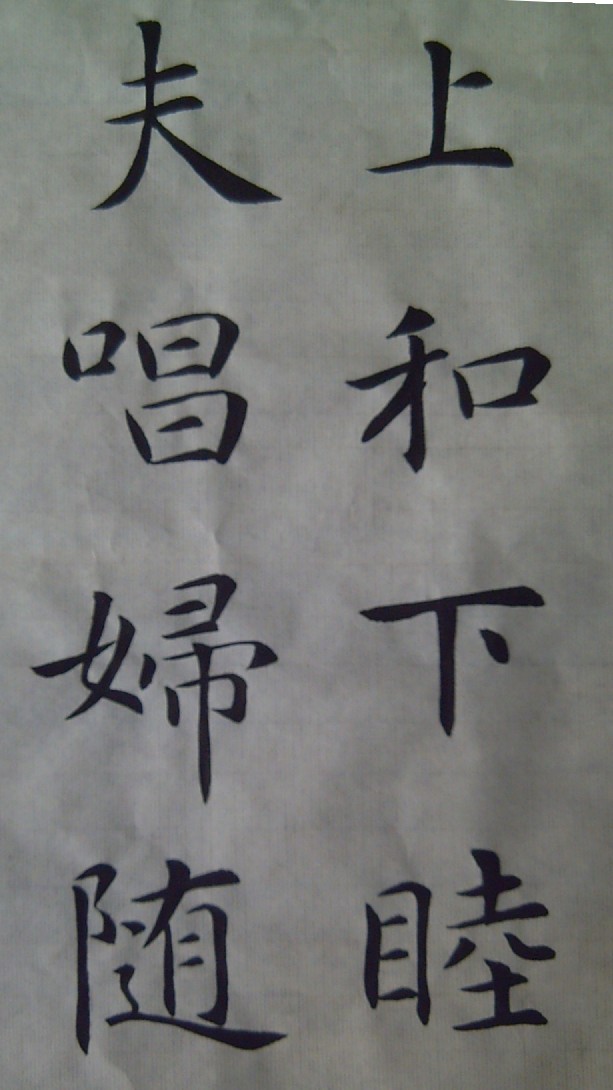 上和下睦
夫唱婦随